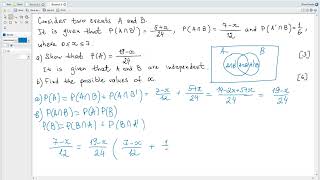 Consider two events A and B.
It is given that P(A∩B') = 5+x/24, P(A∩B) = 7-x/12 and P(A'∩B') = 1/6,
where 0≤x≤7.
a) Show that P(A) = 19-x/24 [3]
It is given that A and B are independent
b) Find the possible values of x. [4]
A B
a) P(A) = P(A∩B) + P(A∩B') = 7-x/12 + 5+x/24 = 14-2x+5+x/24 = 19-x/24
b) P(A∩B) = P(A)P(B)
P(B) = P(B∩A) + P(B∩A')
7-x/12 = 19-x/24 ( 7-x/12 + 1